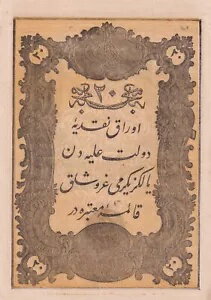 ٢٠
اوراق نقدیهٔ
دولت علیه دن
یالکز یکرمی غروشلق
قائمهٔ معتبره در